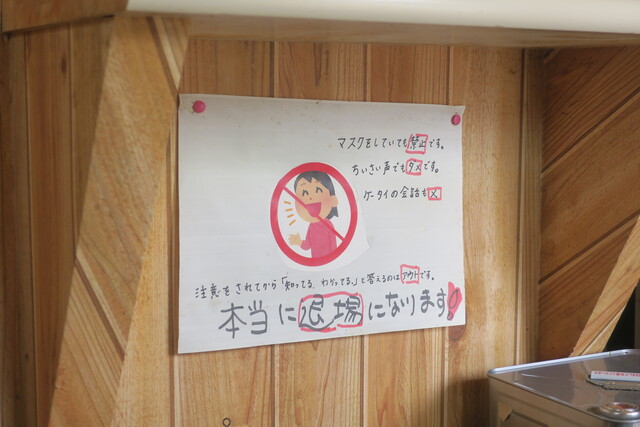 マスクをしていても禁止です。
ちいさい声でもダメです。
ケータイの会話も×
注意をされてから「知ってる、わかってる。」と答えるのはアウトです。
本当に退場になります!